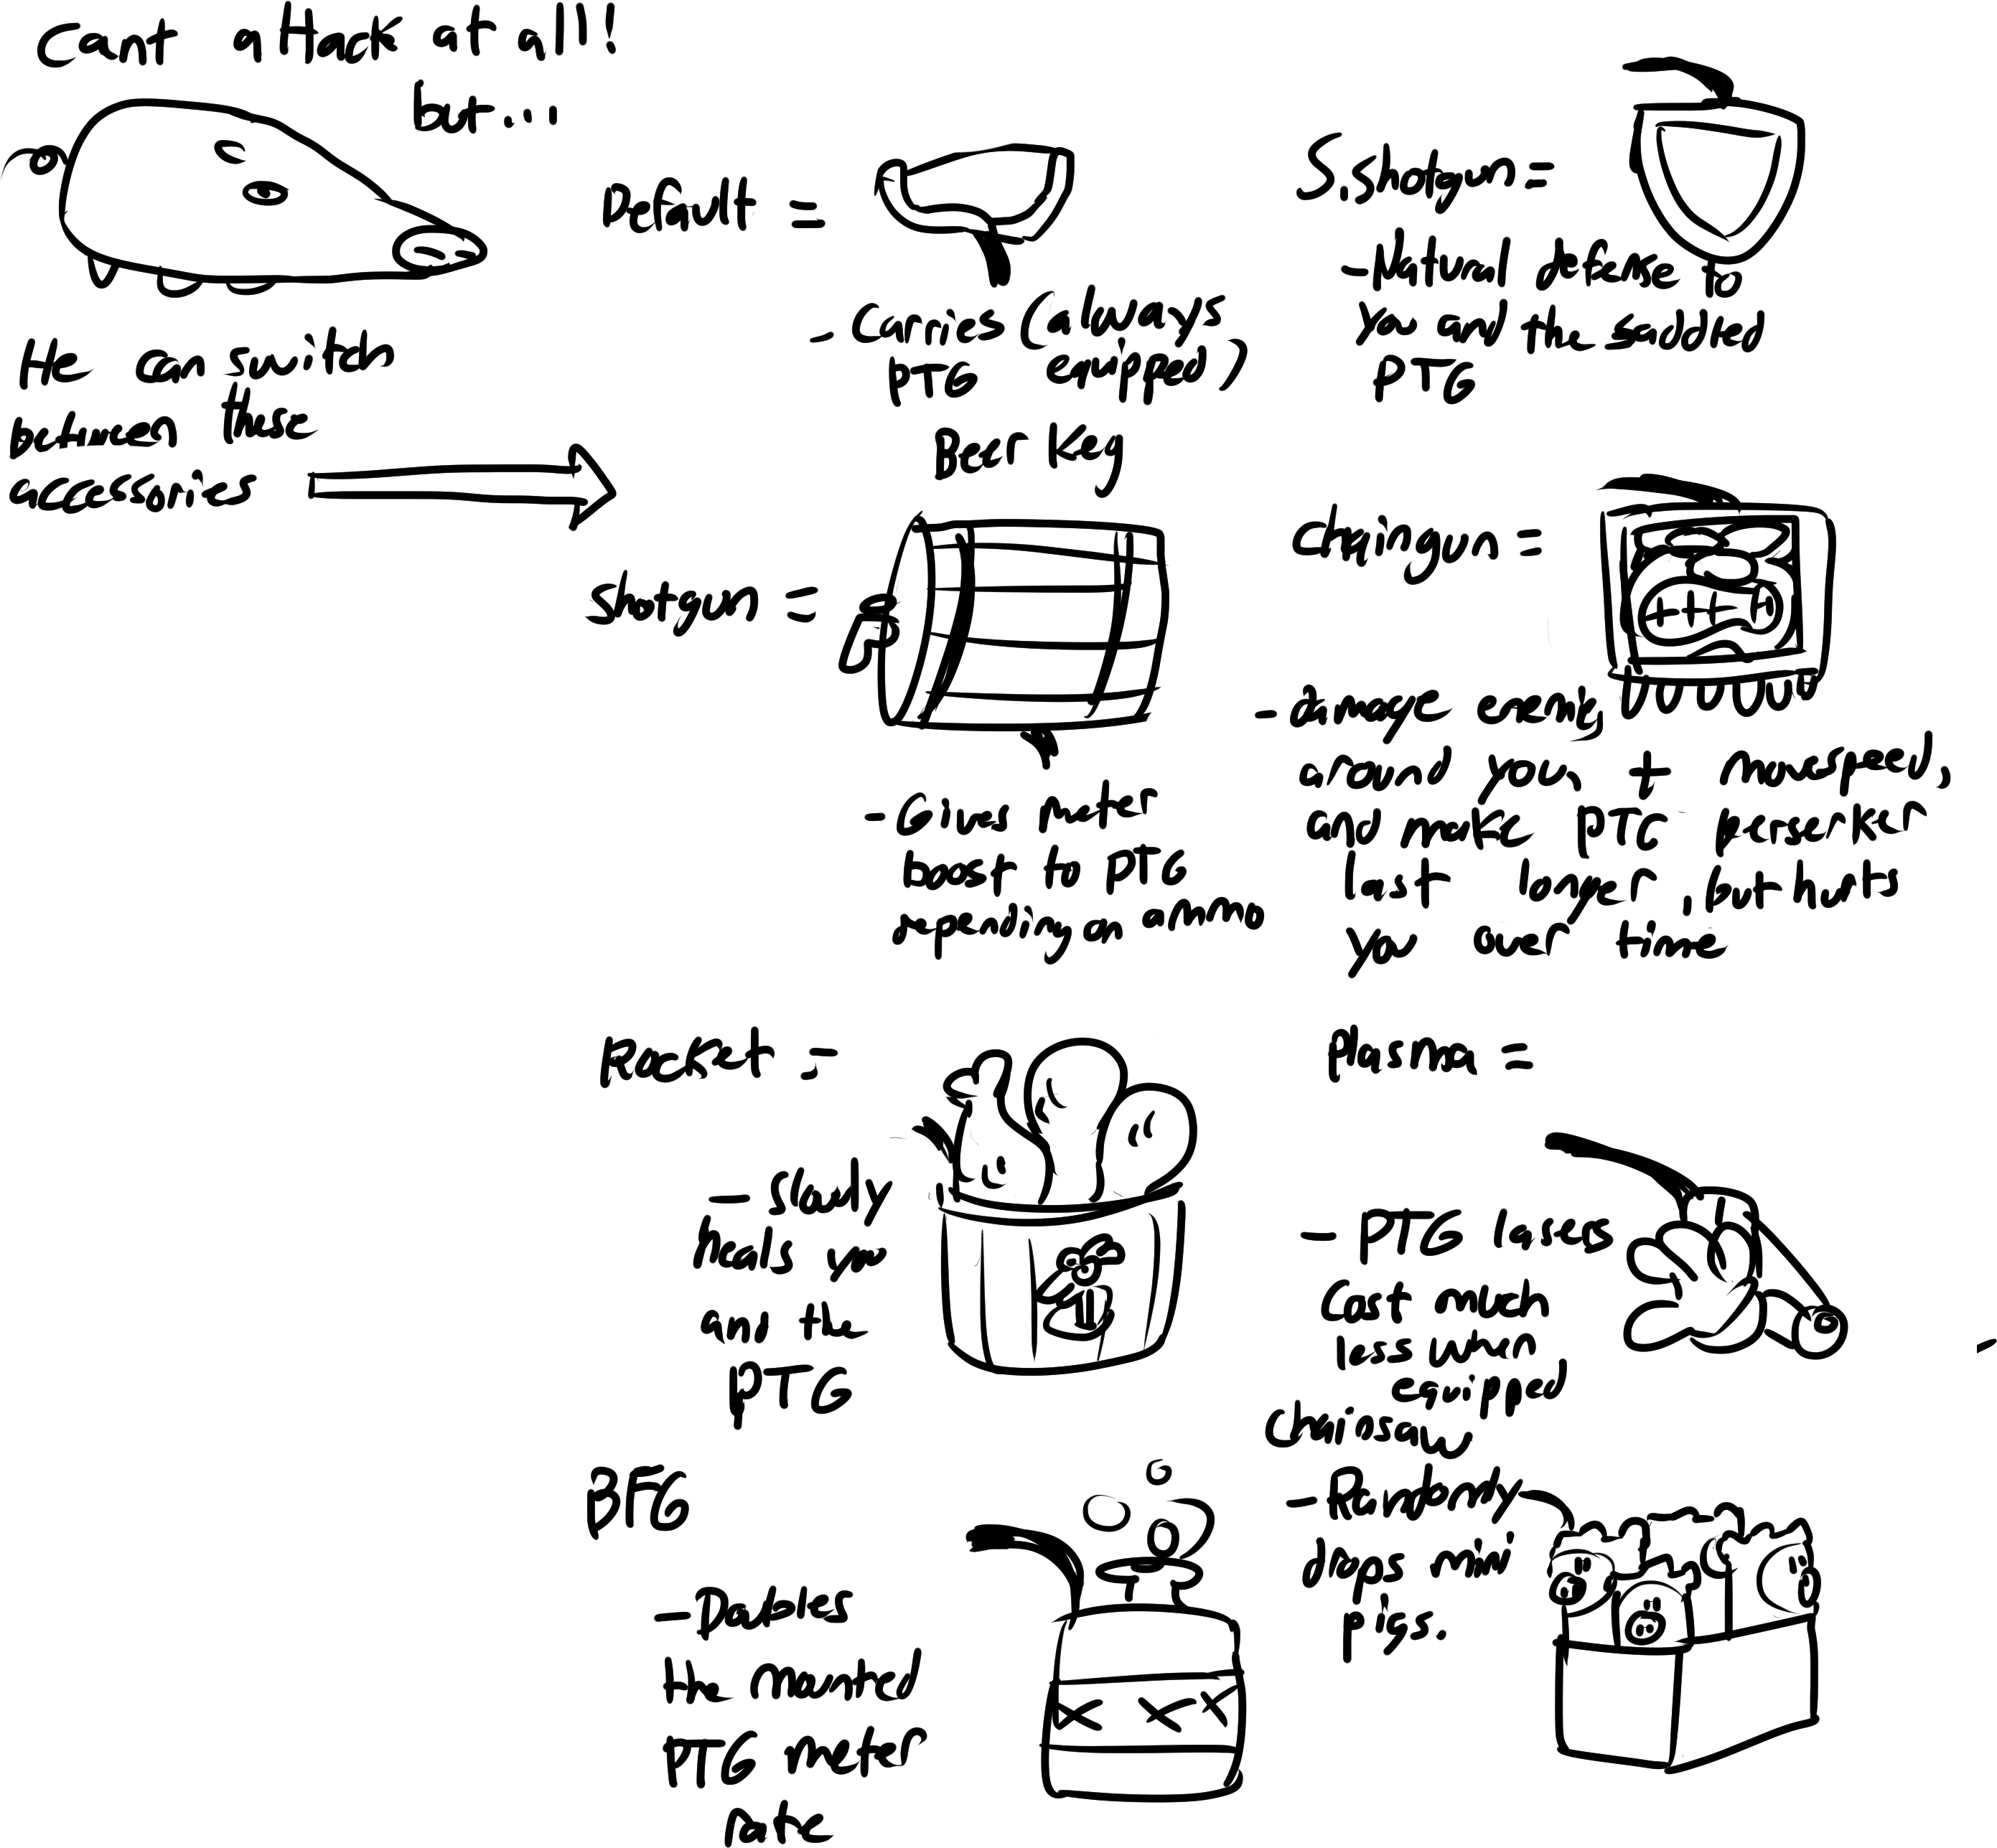 Cant attack at all!!
but...
He can switch
between these
accessories
Default =
- Carries (always
PTG equipped)
S.Shotgun =
- Natural defense to
You and the saddled
PTG
Beer Key
Shotgun =
- Gives meter
boost to PTG
depending on ammo
Chaingun =
- damage enemy
around you, + movespeed,
and make PTG berserker
last longer, but hurts
you over time
Rocket =
- Slowly
heals you
and the
PTG
Plasma =
- PTG lasers
Cost much
less when
equipped
BFG
- Doubles
the mounted
PTG meter
rate
XXX
Chainsaw
- Randomly
drops mini
pigs.